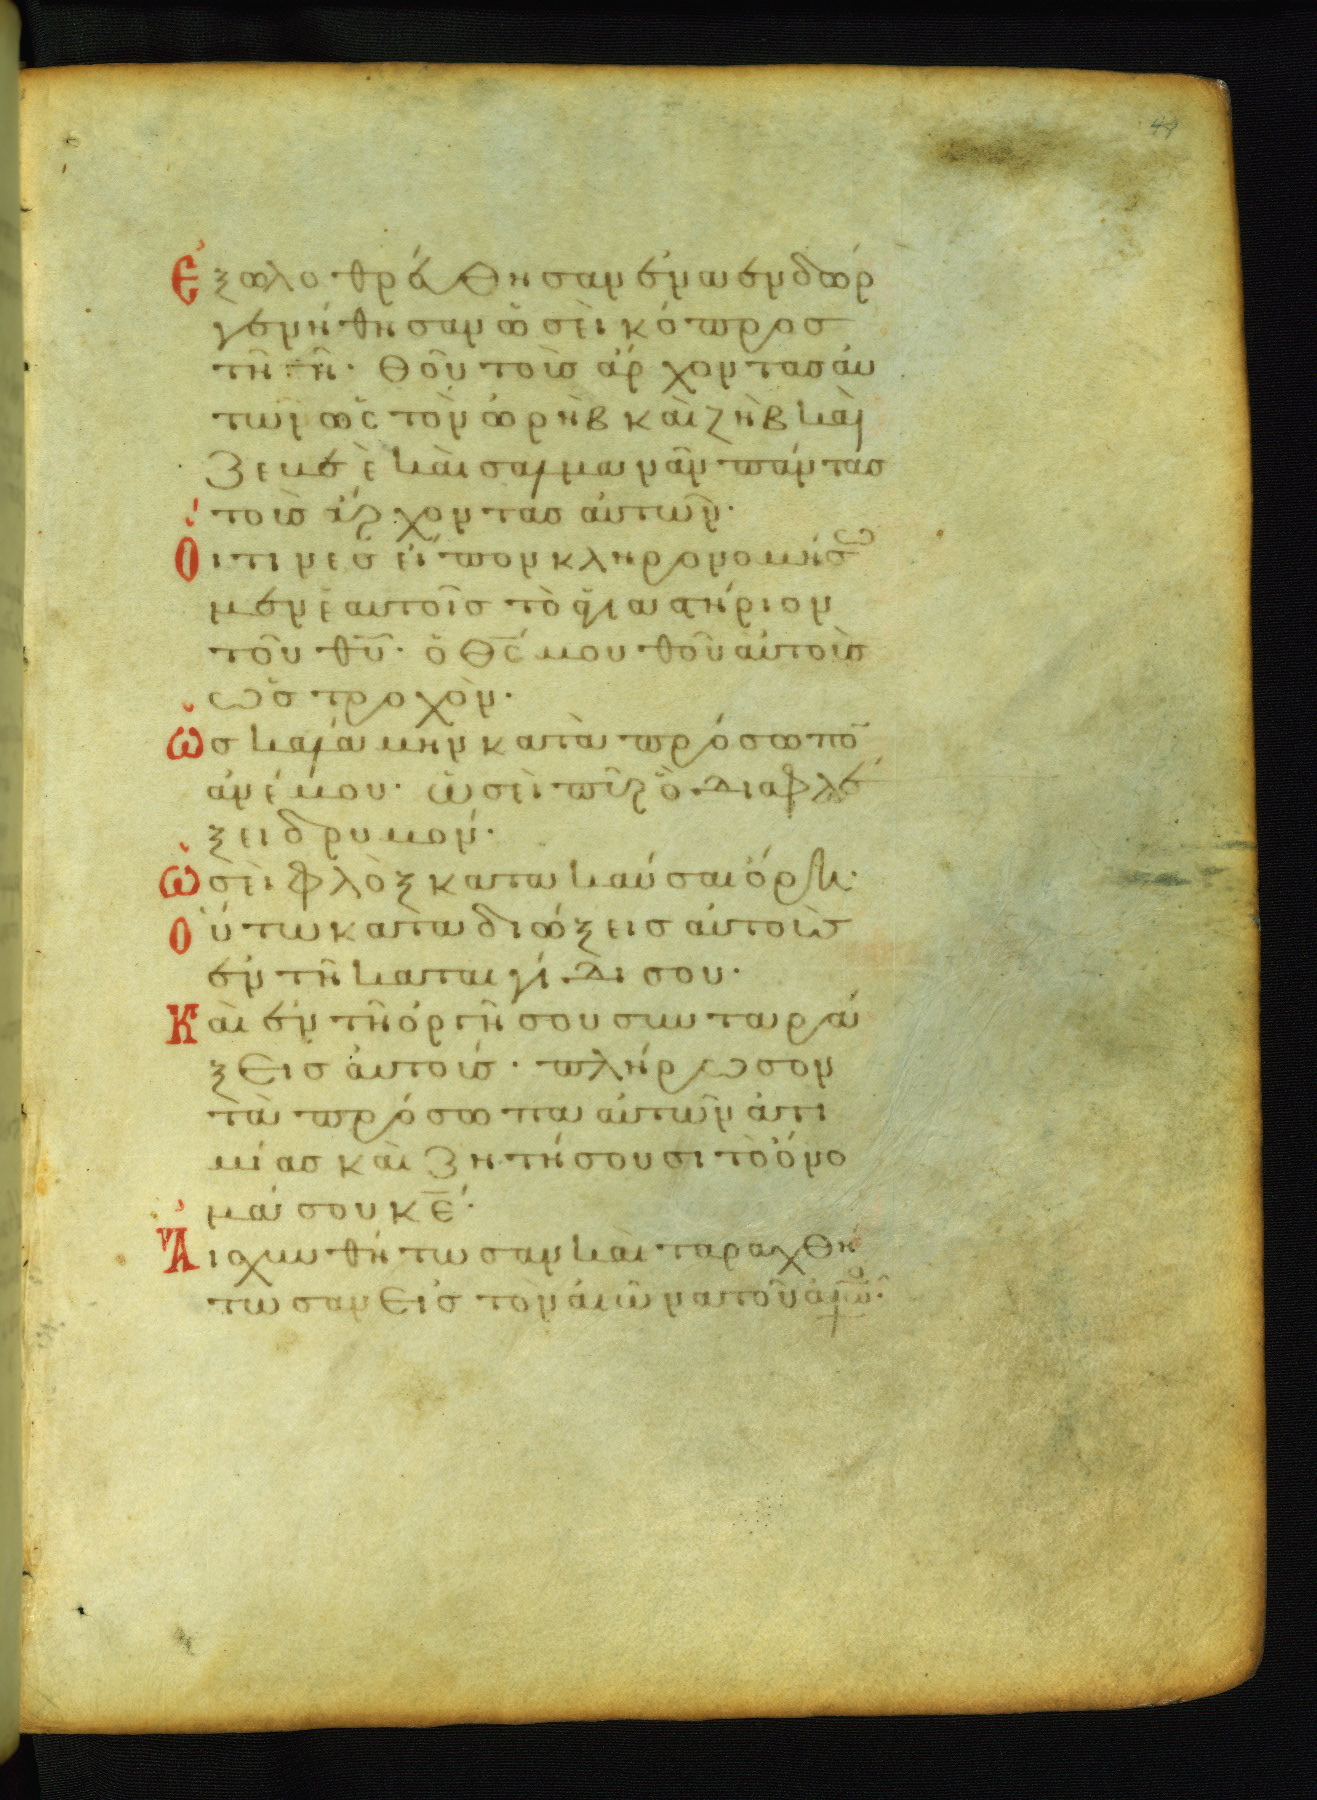 49
Ἐξωλοθρεύθησαν ἐν ἀενδώρ
γενήθησαν ὡσεὶ κόπρος
τῆ γῆ· Θοῦ τοὺς ἄρχοντας αὐ
τῶν ὡς τὸν ὠρὴβ καὶ ζὴβ καὶ
ζεβεὲ καὶ σαλμανᾶν πάντας
τοὺς ἄρχοντας αὐτῶν·
Οἵτινες εἶπον κληρονομήσω
μεν ἑαυτοῖς τὸ ἁγιαστήριον
τοῦ θυ̅· ὁ Θς̅ μου θοῦ αὐτοὺς
ὡς τροχὸν·
Ὡς καλάμην κατὰ πρόσωπο̅
ἀνέμου· ὡσεὶ πῦρ ὃ διαφλέ
ξει δρυμόν·
Ὡσεὶ φλὸξ κατακαύσαι ὄρη·
Οὕτω καταδιώξεις αὐτοὺς
ἐν τῆ καταιγίδι σου·
Καὶ ἐν τῆ ὀργῆ σου συνταρά
ξεις αὐτούς· πλήρωσον
τὰ πρόσωπα αὐτῶν ἀτι
μίας καὶ ζητήσουσι τὸ ὄνο
μά σου κε̅·
Αἰσχυνθήτωσαν καὶ ταραχθή
τωσαν εἰς τὸν αἰῶνα τοῦ αἰῶ·